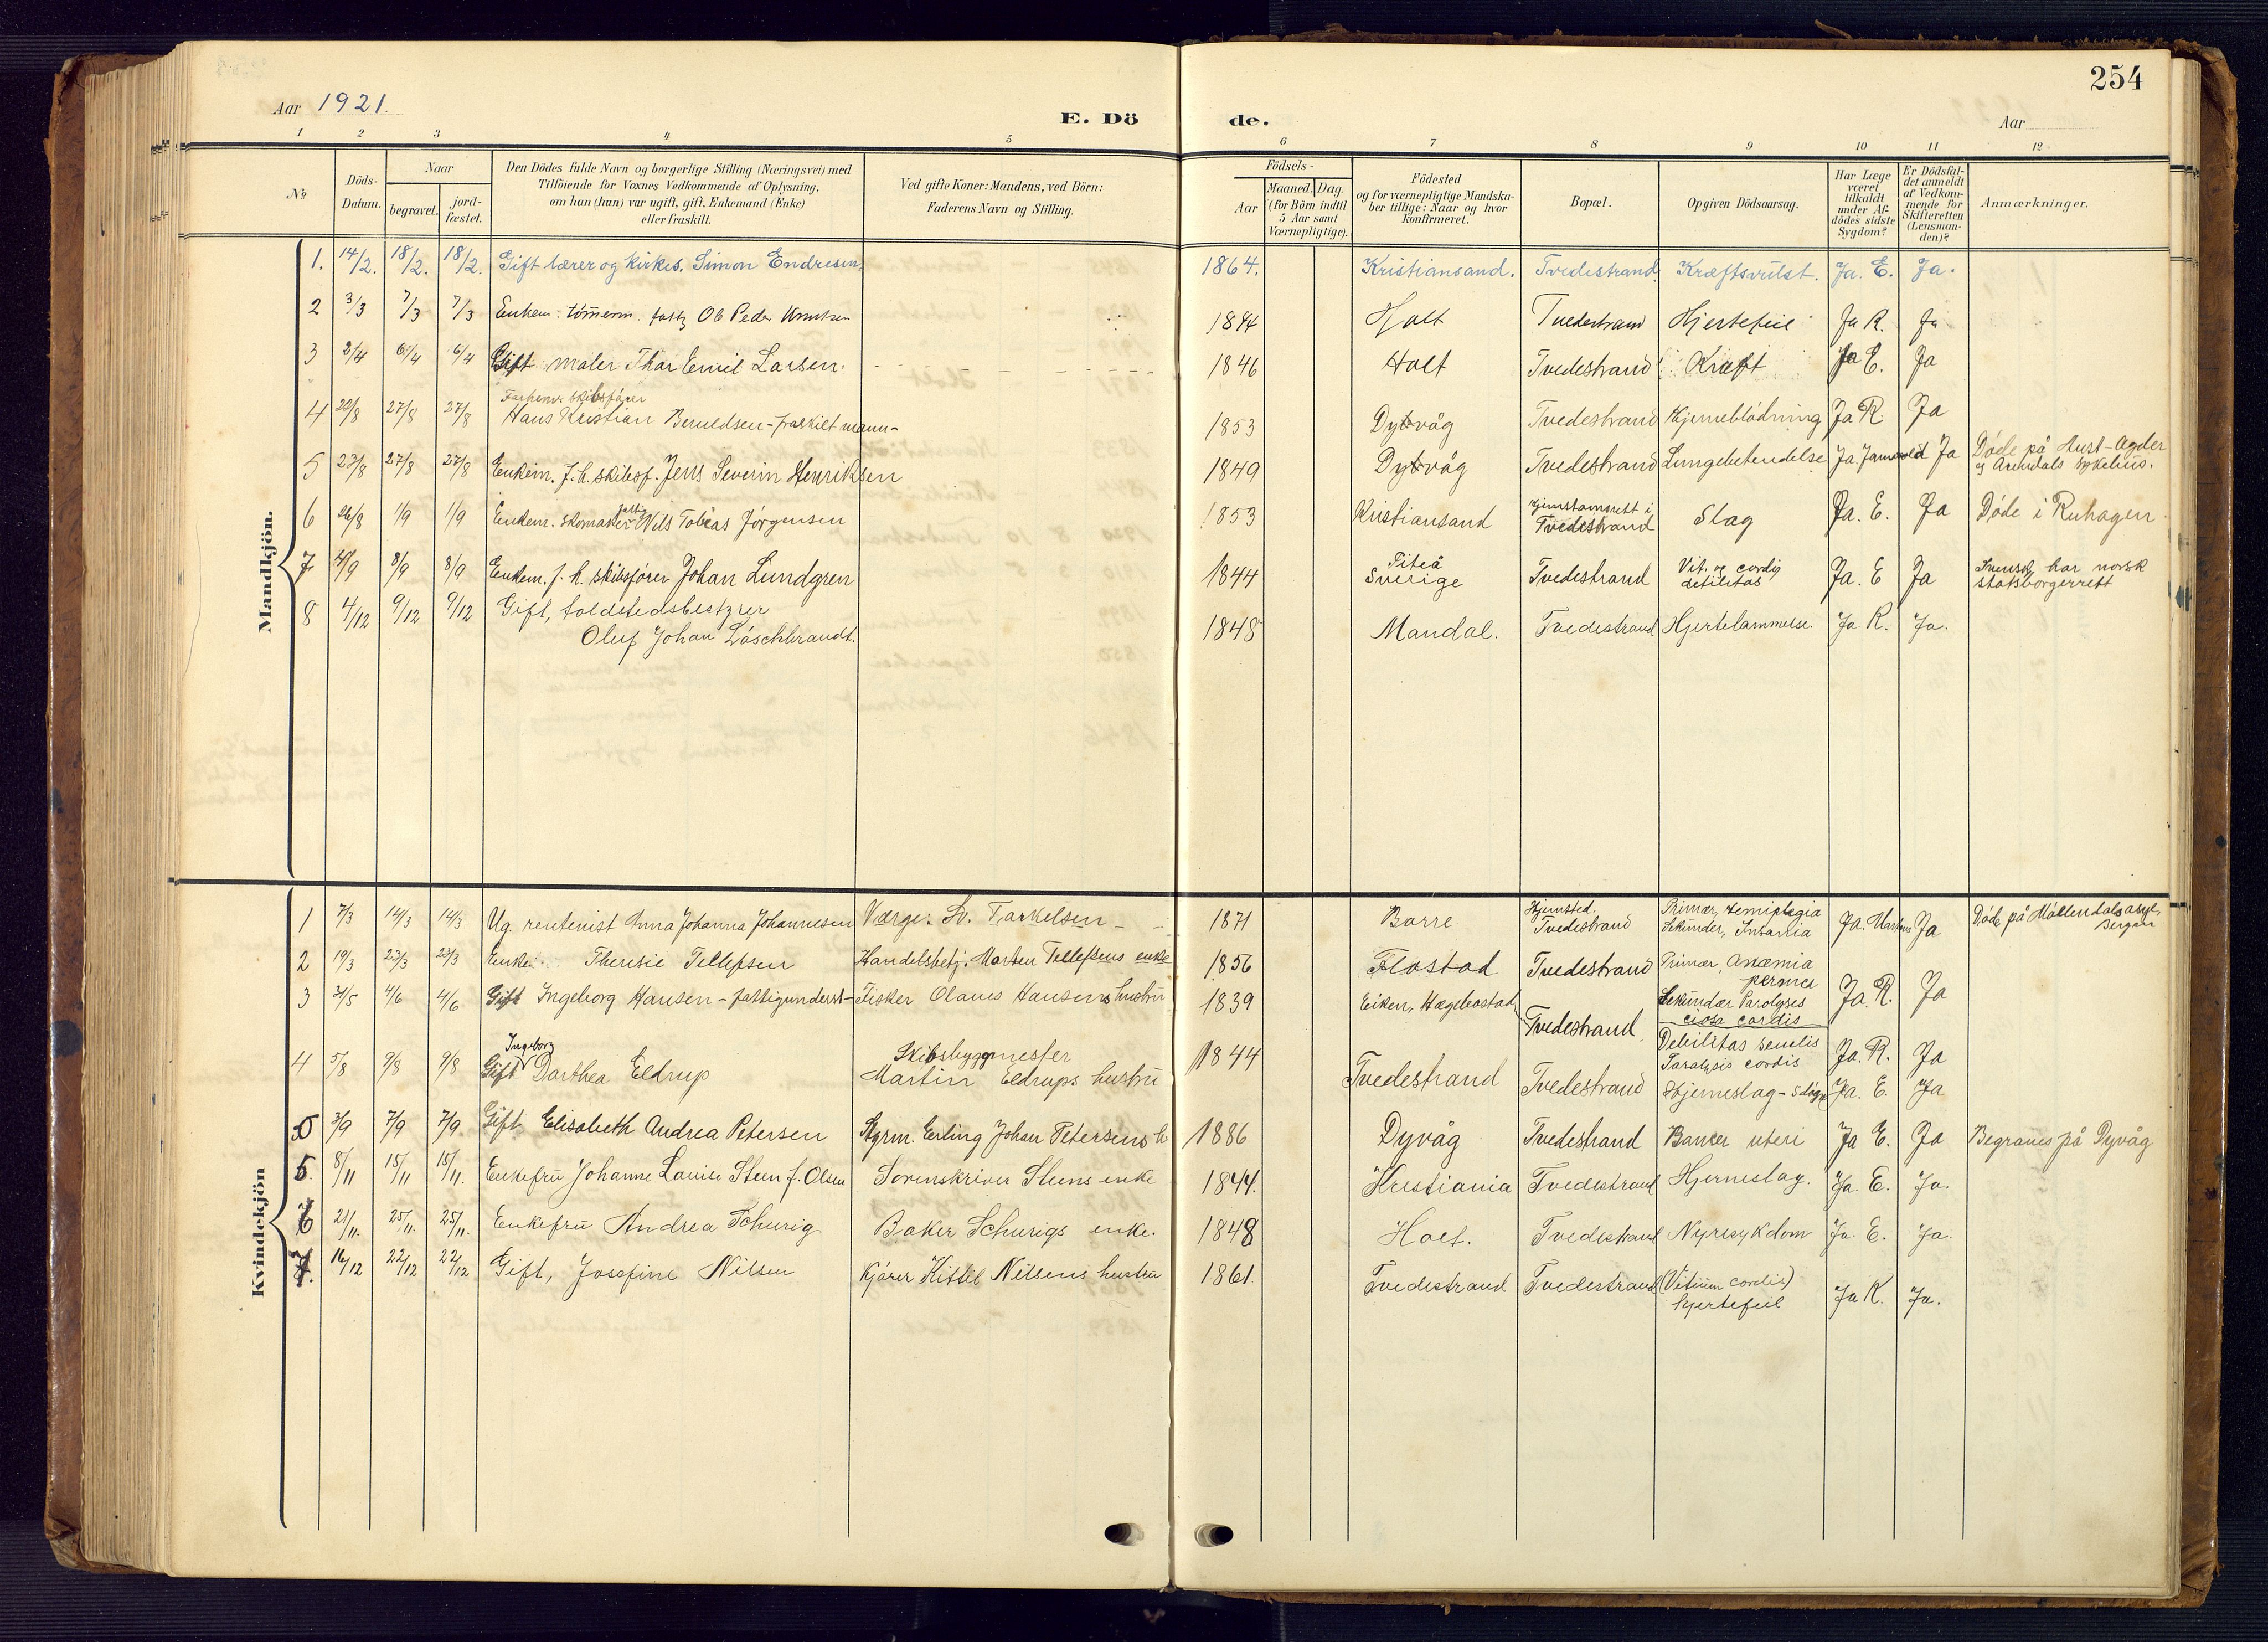 254
Aar 1921.
E. Dö de.
Aar
1 2 3 4 5 6 7 8 9 10 11 12
No.
Döds-Datum.
Naar
begravet.
jord-fæstet.
Den Dödes fulde Navn og borgerlige Stilling (Næringsvei) med
Tilföiende for Voxnes Vedkommende af Oplysning,
om han (hun) var ugift, gift, Enkemand (Enke)
eller fraskilt.
Ved gifte Koner: Mandens, ved Börn:
Faderens Navn og Stilling.
Födsels-
Aar
Maaned. Dag.
(for Börn indtil
5 Aar samt
Værnepligtige).
Födested
og for værnepligtige Mandska-
ber tillige: Naar og hvor
konfirmeret.
Bopæl.
Opgiven Dödsaarsag.
Har Læge
været
tilkaldt
under Af-
dödes sidste
Sygdom?
Er Dödsfal-
det anmeldt
af Vedkom-
mende for
Skifteretten
(Lensman-
den)?
Anmærkninger.
Mandkjön.
1. 14/2. 18/2. 18/2. Gift lærer og kirkes. Simon Endresen, 1864. Kristiansand. Tvedestrand. Kræftsvulst. Ja. E. Ja.
2 3/3 7/3 7/3 Enkem. tömerm. Ole Peder Knutsen 1844 Holt Tvedestrand Hjertefeil Ja R. Ja
3 2/4 6/4 6/4 Gift maler Thor Emil Larsen. 1846 Holt Tvedestrand Kræft Ja E. Ja
Forhenv. skibsförer
4 20/8 27/8 27/8 Hans Kristian Berueldsen - fraskilt mann - 1853 Dyvåg Tvedestrand Hjerneblödning Ja R. Ja
5 23/8 27/8 27/8 Enkem. f. h. skibsf. Jens Severin Henriksen 1849 Dyvåg Tvedestrand Lungebetendelse Ja Ja Döde på Aust-Agder
og Arendals sykehus.
6 26/8 1/9 1/9 Enkem. skomaker Nils Tobias Jörgensen 1853 Kristiansand Hjemstamsrett i
Tvedestrand Slag Ja. E. Ja Döde i Ruhagen
7 4/9 8/9 8/9 Enkem. f. h. skibsförer Johan Lundgren 1844 Piteå
Sverige Tvedestrand Vit. og cordis
debilitas Ja. E Ja Svensk, har norsk
statsborgerrett
8 4/12 9/12 9/12 Gift, toldstedsbestyrer
Oluf Johan Löschbrandt. 1848 Mandal. Tvedestrand Hjertelammelse. Ja R. Ja.
Kvindekjön
1 7/3 14/3 14/3 Ug. rentenist Anna Johanna Johannesen Værge: Sv. Tarkelsen 1871 Borre Hjemsted.
Tvedestrand Primær, Hemiplegia
Sekundær, Insania Ja. Ja Döde på Möllendalsasyl,
Bergen
2 19/3 23/3 23/3 Enke Theresie Tellefsen Handelsbetj. Morten Tellefsens enke 1856 Flostad Tvedestrand Primær, Anæmia
pernici
Sekundær Paralyses
cordis Ja. R. Ja
3 31/5 4/6 4/6 Gift Ingeborg Hansen - fattigunderst - Fisker Olaus Hansens hustru 1839 Eiken, Hægebostad Tvedestrand. Debilitas senilis
Paralysis cordis Ja. R. Ja
Ingeborg
4 5/8 9/8 9/8 Gift Dorthea Eldrup Skibsbyggmester
Martin Eldrups hustru 1844 Tvedestrand Tvedestrand Hjerneslag - Ja. E. Ja
5 3/9 7/9 7/9 Gift Elisabeth Andrea Petersen Styrm. Erling Johan Petersens h 1886 Dyvåg Tvedestrand Cancer uteri Ja E. Ja Begraves på Dyvåg
5. 8/11 15/11 15/11. Enkefru Johanne Louise Steen f. Olsen Sorenskriver Steens enke 1844. Kristiania Tvedestrand Hjerneslag. Ja. E. Ja.
6 21/11. 25/11. 25/11. Enkefru Andrea Schurig Baker Schurigs enke. 1848 Holt. Tvedestrand Nyresykdom Ja. E. Ja.
7. 16/12 22/12 22/12 Gift, Josefine Nilsen Kjörer Kittel Nilsens hustru 1861. Tvedestrand Tvedestrand (Vitium cordis)
hjertefeil Ja K. Ja.